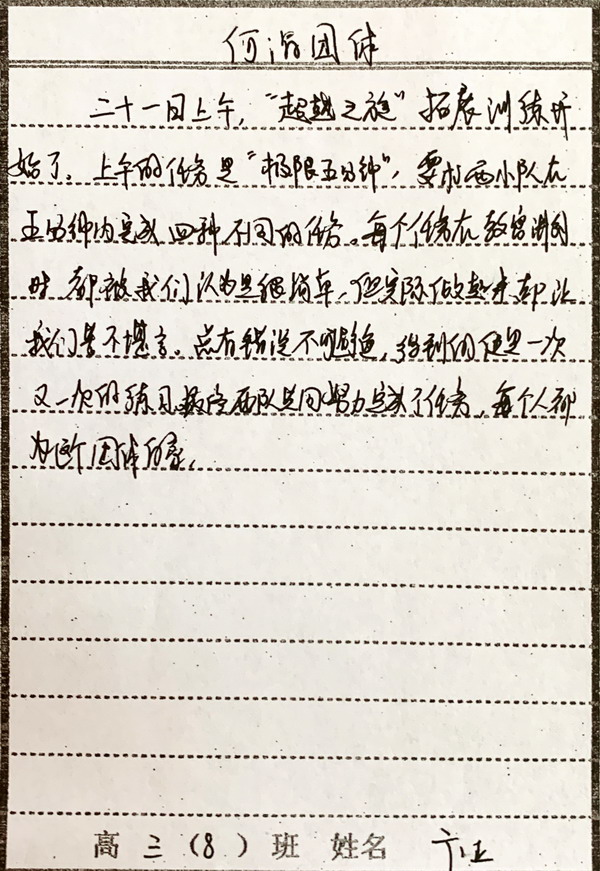 何谓团体
二十一日上午，“超越之旅”拓展训练开
始了。上午的任务是“极限五分钟”，要求两小队在
五分钟内完成四种不同的任务。每个任务在教官讲到
时都被我们认为是很简单，但实际做起来却让
我们苦不堪言。总有错误不断，得到的便是一次
又一次的练习，最后两队共同努力完成了任务，每个人都
为这个团体自豪。
高三（8）班 姓名